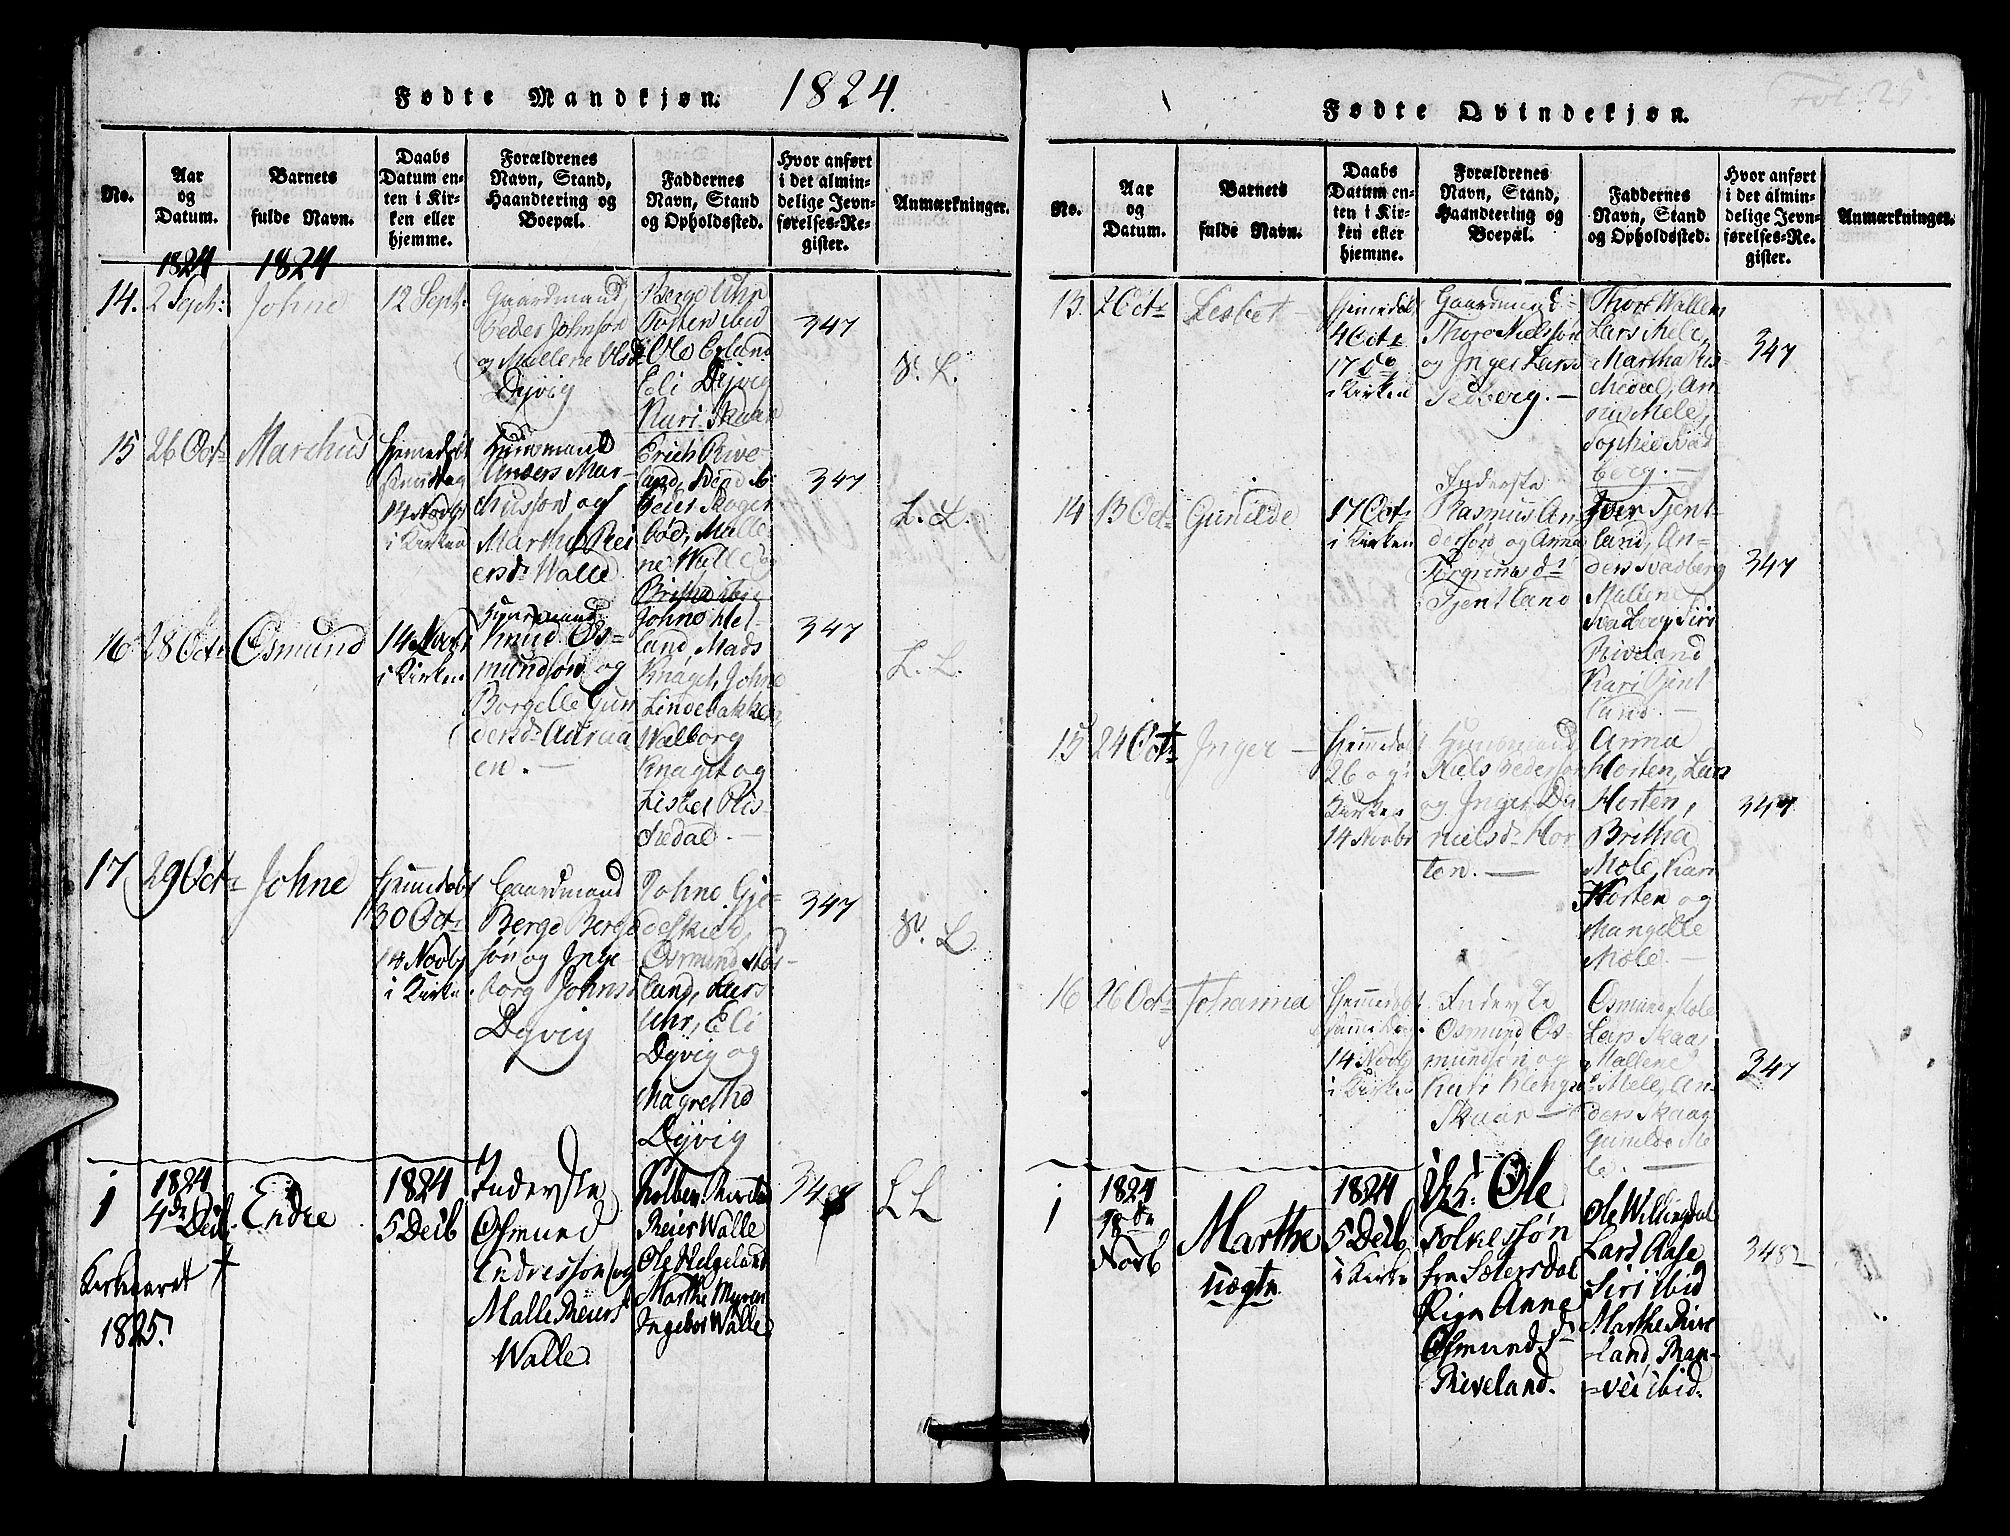 Fødte Mandkjøn. 1824.
No.
Aar og Datum.
Barnets fulde Navn.
Daabs Datum enten i Kirken eller hjemme.
Forældrenes Navn, Stand, Haandtering og Boepæl.
Faddernes Navn, Stand og Opholdssted.
Hvor anført i det almindelige Jevnførelses-Register.
Anmærkninger.
1824 1824
14. 2 Sept: Johne 12 Sept:
Gaardmand
Peder Johnsøn
og Mallene Olsd
Dyvig
Berge Uhr
Tosten ibid
Ole Erland
Eli Dyvig
Kari Skaar
347
V. L.
15 26 Oct: Marchus
Hjemedøbt
14 Novbr
i Kirken
Huusmand
Anders Mar-
chusson og
Martha Rei
ersd: Walle
Erich Rive-
land, Svend ib:
Reier Skager
bød, Malle
ne Walle og
Britha ibid
347
L. L.
16 28 Oct: Osmund
14 Novbr
i Kirken
Huusmand
Knud Os=
mundsøn og
Borgelle Gun
dersd: Adraa
en. —
Johne Hel-
land, Mads
Knaget, Johne
Lindebakken
Walborg
Knaget og
Lisbet Ris-
kedal. —
347
L. L.
17 29 Oct: Johne
Hjemedøbt
30 Oct:
14 Novbr
i Kirken
Gaardmand
Berge Berge
søn og Inge
borg Johnsd
Dyvig
Johne Gje-
deskied,
Osmund
land, Lars
Uhr, Eli
Dyvig og
Magrethe
Dyvig
347
V. L.
1 1824
4de Decb. Endre
1824
5 Decb
Inderste
Osmund
Endresson og
Malle Reiersd
Walle.
Kolben
Reier Walle
Ole Helgeland
Marthe Myren
Ingebor Walle
348
LL
Kirkegaaret +
1825.
Fol: 25
Fødte Qvindekjøn.
No.
Aar og Datum.
Barnets fulde Navn.
Daabs Datum enten i Kirken eller hjemme.
Forældrenes Navn, Stand, Haandtering og Boepæl.
Faddernes Navn, Stand og Opholdssted.
Hvor anført i det almindelige Jevnførelses-Register.
Anmærkninger.
13. 2 Oct: Lisbet —
Hjemedøbt
4 Oct:
17 do
i Kirken
Gaardmand
Thore Nielssøn
og Inger Larsd
Sedberg. —
Thore Wallen
Lars Mele,
Martha Ris-
kedal, An
na Mele,
Sophie Svad
berg. —
347
14 13 Oct: Gunilde
17 Oct:
i Kirken
Inderste
Rasmus An
dersøn og Anna
Torgrimsd:
Tjentland
Iver Tjent-
land, An=
ders Svadberg
Mallene
Svadberg, Siri
Riveland
Kari Tjent
land. —
347
15 24 Oct: Inger —
Hjemedøbt
26 og i
Kirken
14 Novbr
Huusmand
Niels Pederson
og Inger Da
nielsd: Hor
ten. —
Anna
Horten, Lars
Horten,
Britha
Mele, Kari
Horten og
Mangelle
Mele. —
347
16 26 Oct: Johanna
Hjemedøbt
14 Novbr
i Kirken
Inderste
Osmund Os-
mundsøn og
Kari
Skaar —
Osmund Mele
Lars Skaar
Mallene
Mele, An-
ders Skaar
Gunilde Me
le. —
347
1 1824
18de
Novb Marthe
uægte
1824
5 Decb
i Kirke
Ole
Folkessøn
fra Sætersdal
Pige Anne
Osmundsd
Riveland.
Ole Willingdal
Lars Aase
Siri ibid
Marthe Rive
land, Ran-
=vei ibid.
348